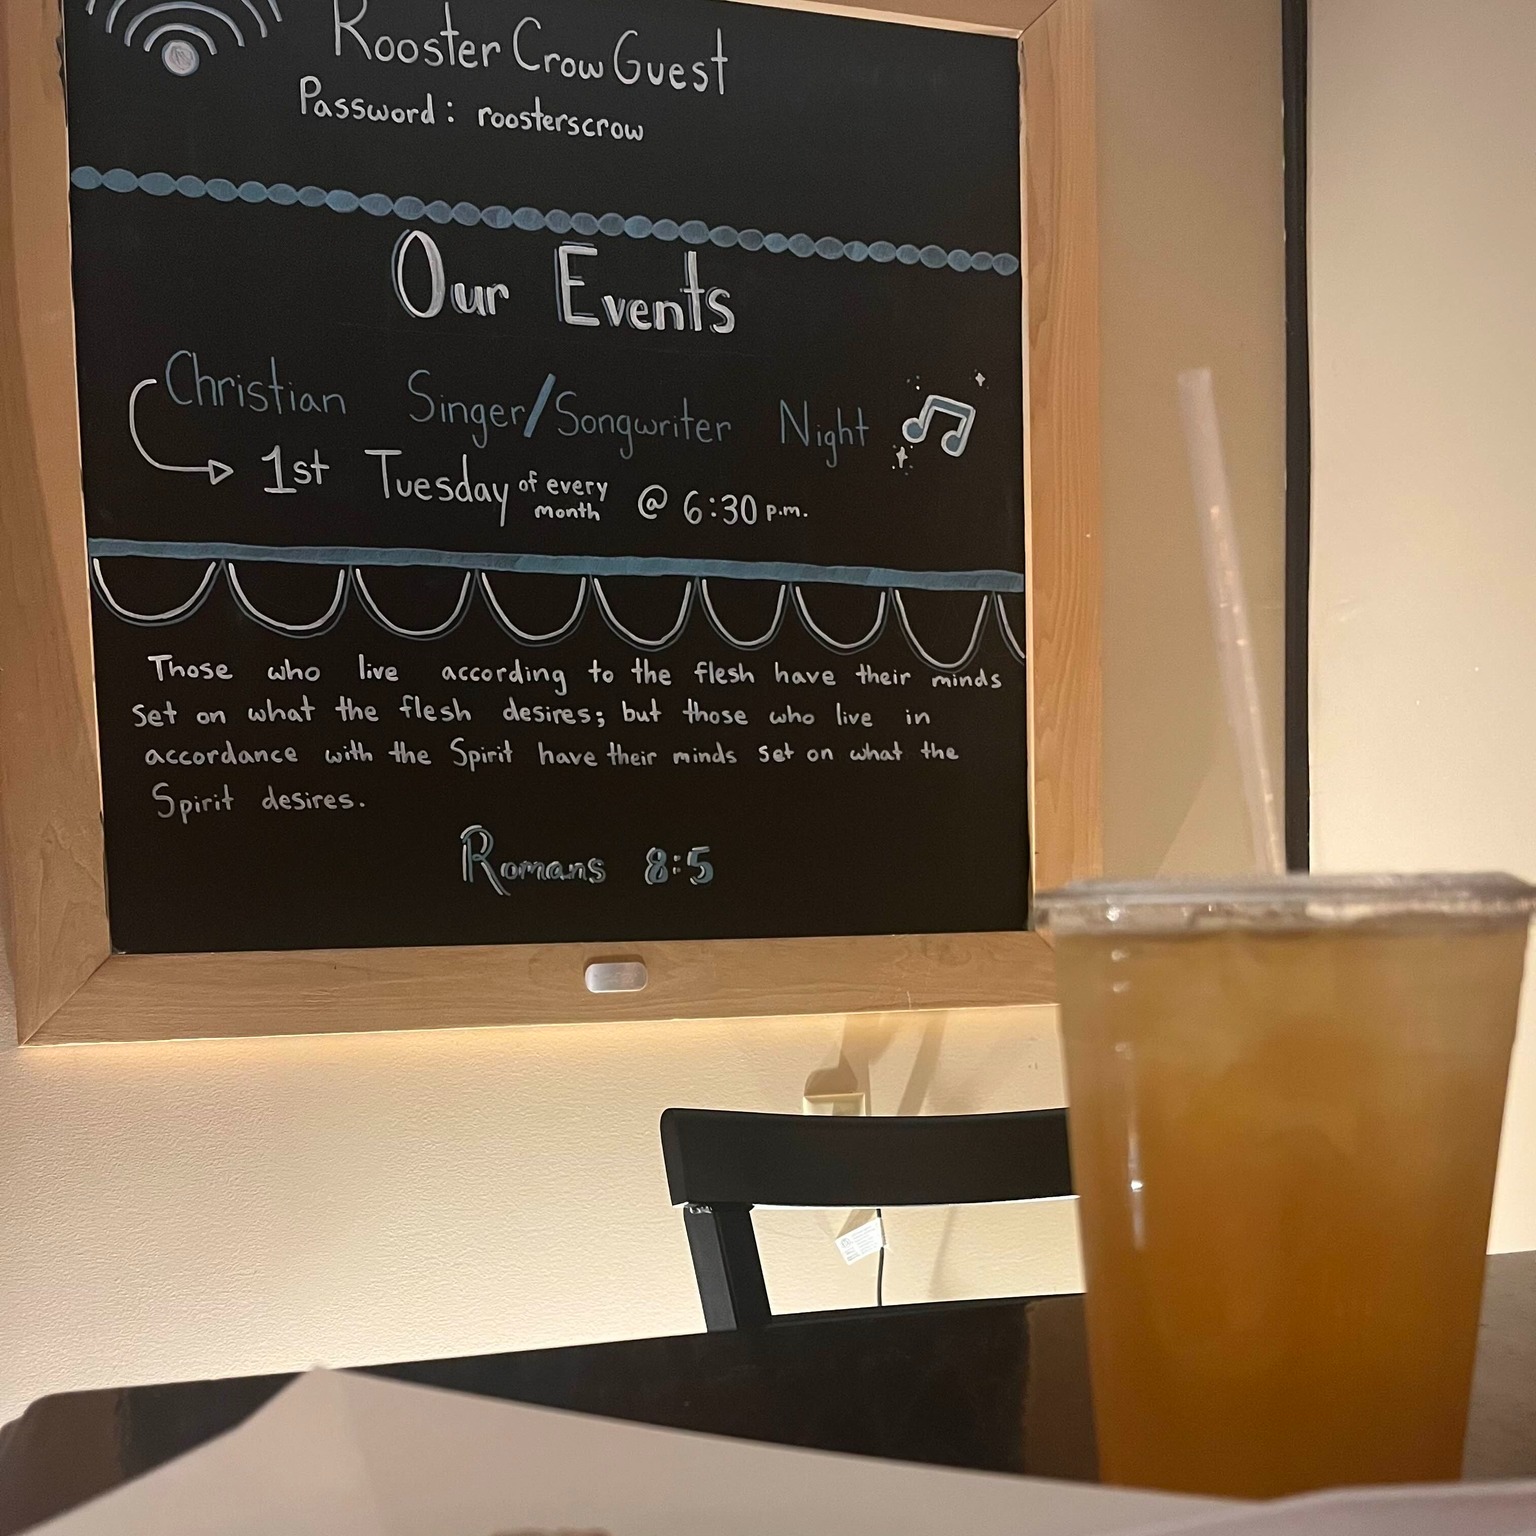 Rooster Crow Guest
Password: roosterscrow
Our Events
Christian Singer/Songwriter Night
1st Tuesday of every month @ 6:30 p.m.
Those who live according to the flesh have their minds
set on what the flesh desires; but those who live in
accordance with the Spirit have their minds set on what the
Spirit desires.
Romans 8:5